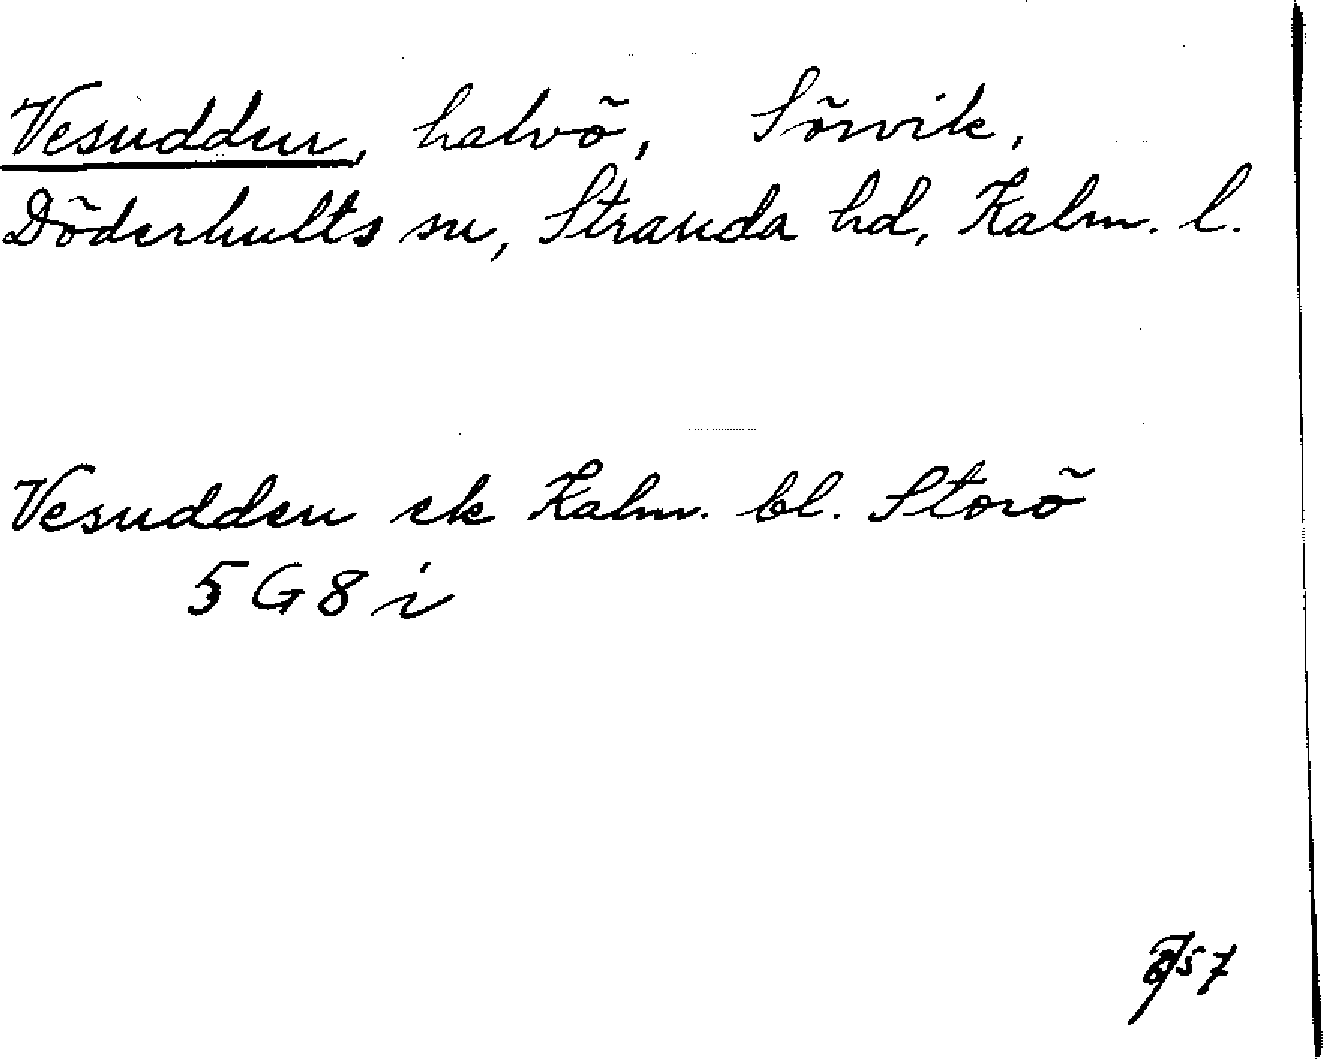 Vesudden, halvö, Sörvik,
Döderhults sn, Stranda hd, Kalm. l.
Vesudden ek Kalm. bl. Storö
5 G 8 i
57